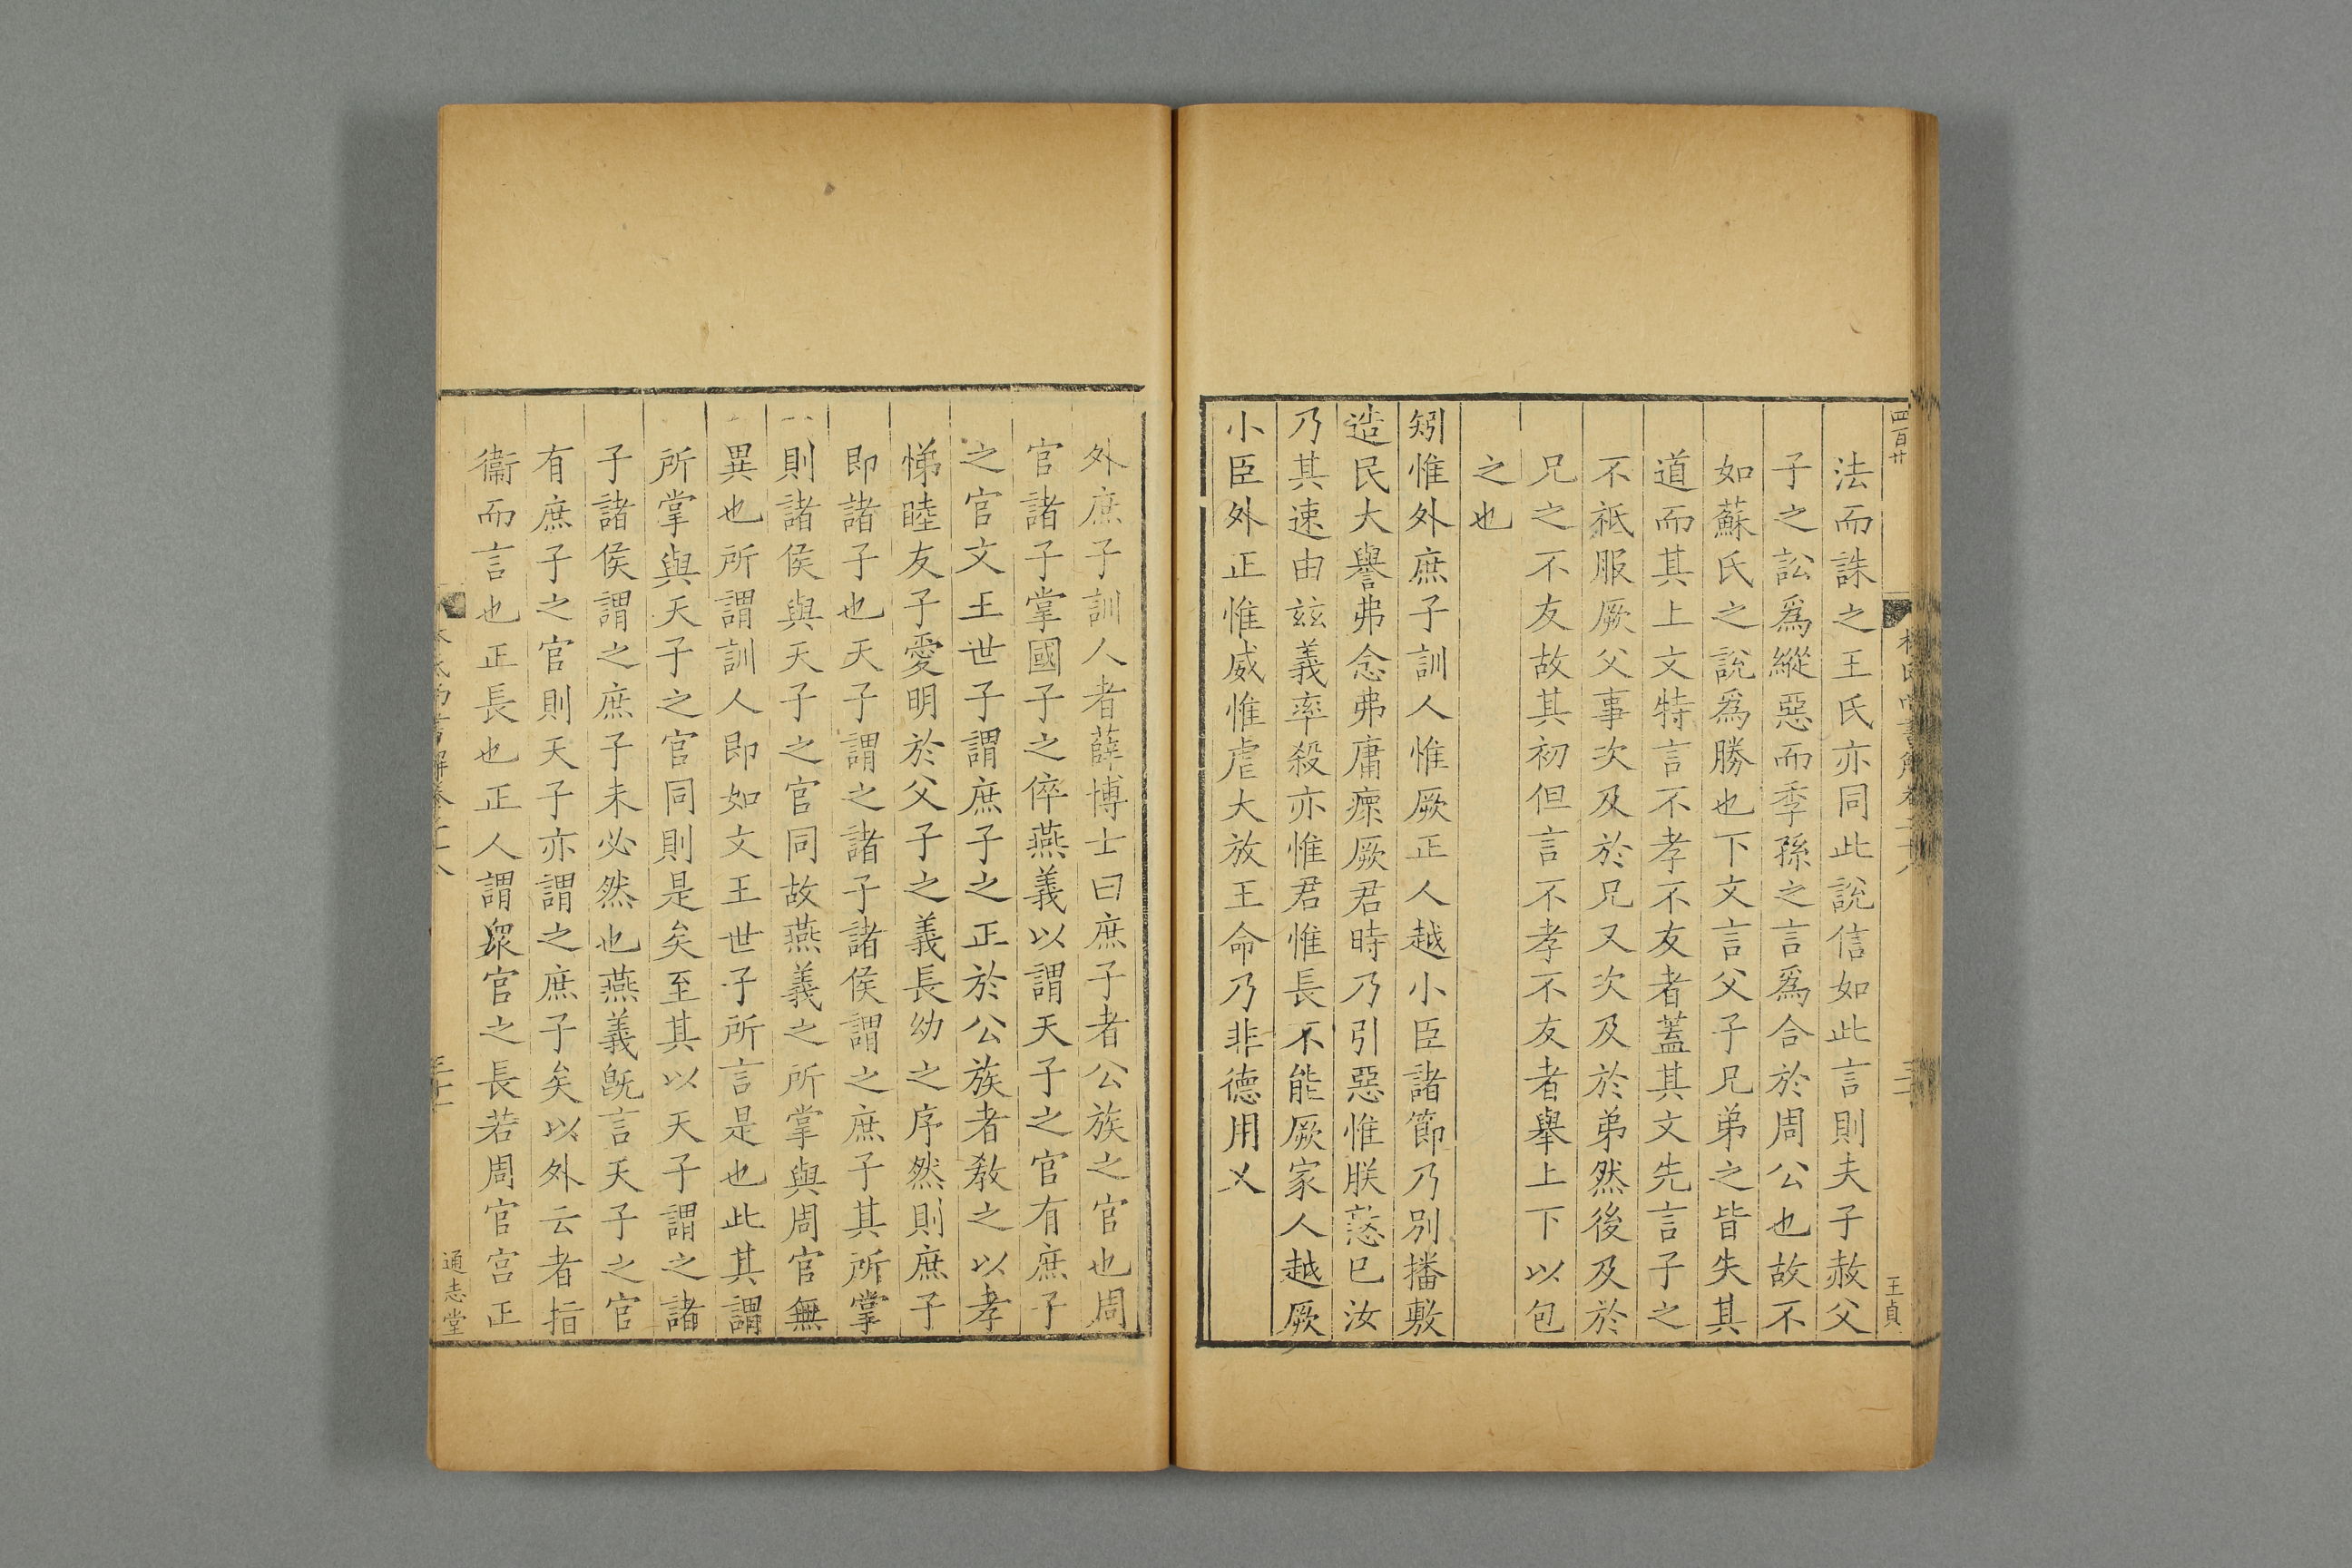 四百廿
王貞
法而誅之王氏亦同此說信如此言則夫子赦父
子之訟爲縱惡而季孫之言爲合於周公也故不
如蘇氏之說爲勝也下文言父子兄弟之皆失其
道而其上文特言不孝不友者蓋其文先言子之
不祗服厥父事次及於兄又次及於弟然後及於
兄之不友故其初但言不孝不友者舉上下以包
之也
矧惟外庶子訓人惟厥正人越小臣諸節乃別播敷
造民大譽弗念弗庸瘝厥君時乃引惡惟朕憝已汝
乃其速由玆義率殺亦惟君惟長不能厥家人越厥
小臣外正惟威惟虐大放王命乃非德用乂
外庶子訓人者薛博士曰庶子者公族之官也周
官諸子掌國子之倅燕義以謂天子之官有庶子
之官文王世子謂庶子之正於公族者教之以孝
悌睦友子愛明於父子之義長幼之序然則庶子
即諸子也天子謂之諸子諸侯謂之庶子其所掌
則諸侯與天子之官同故燕義之所掌與周官無
異也所謂訓人即如文王世子所言是也此其謂
所掌與天子之官同則是矣至其以天子謂之諸
子諸侯謂之庶子未必然也燕義旣言天子之官
有庶子之官則天子亦謂之庶子矣以外云者指
衞而言也正長也正人謂眾官之長若周官宮正
通志堂